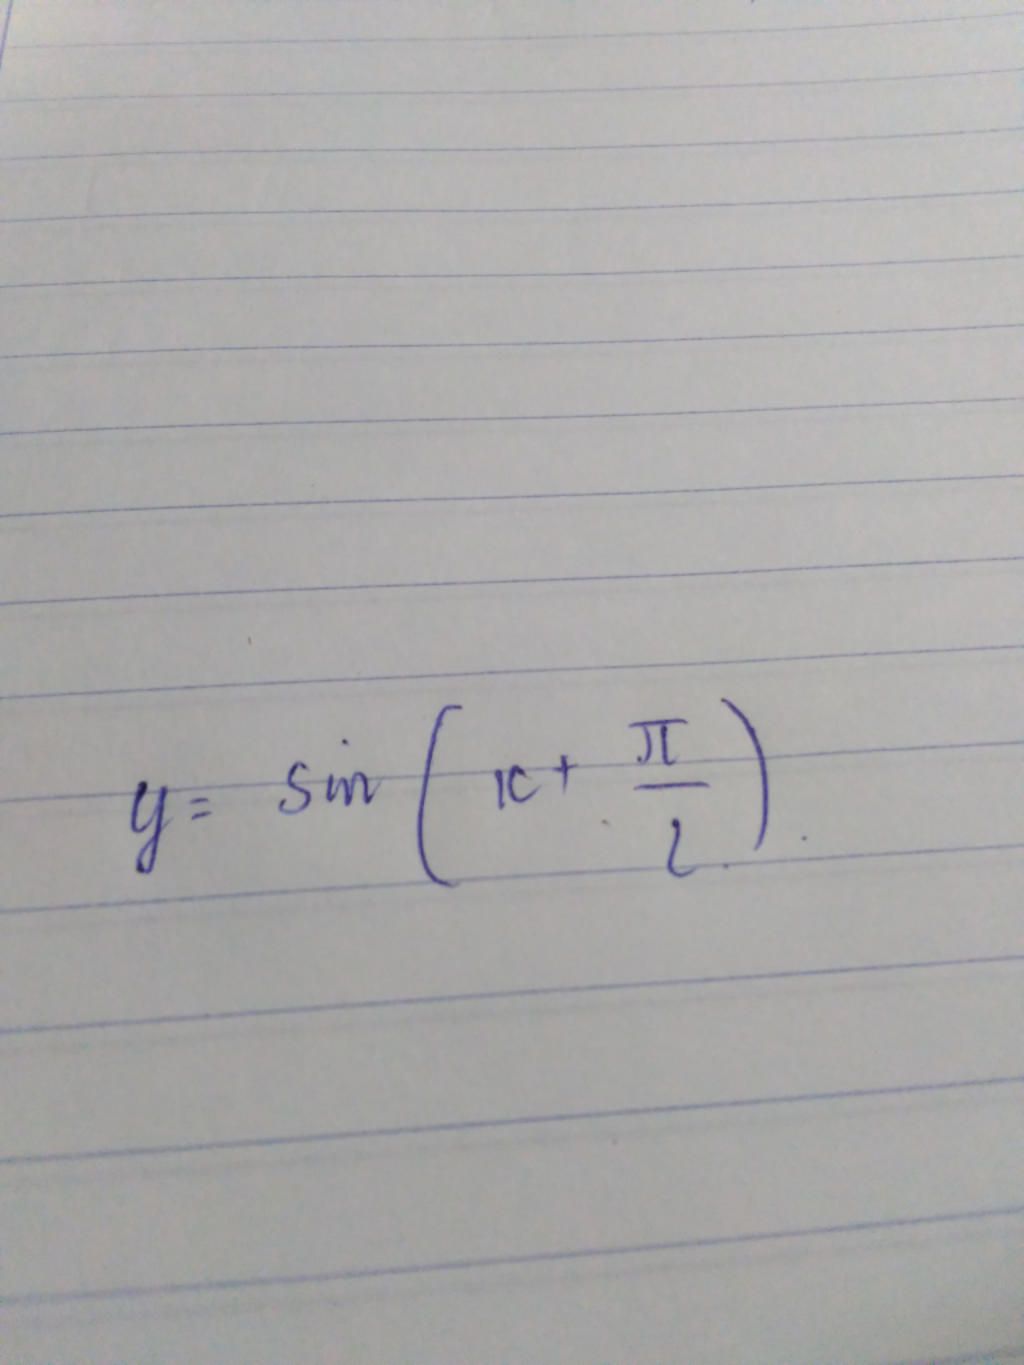 y = sin ( x + π/2 ).